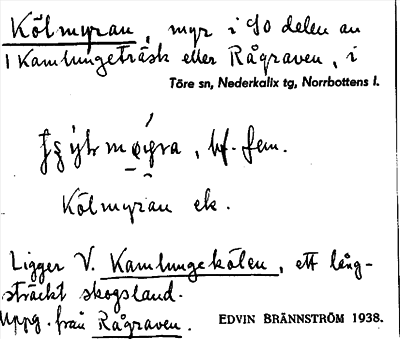 Kölmyran, myr i SO delen av
Kamlungeträsk eller Rågraven, i
Töre sn, Nederkalix tg, Norrbottens l.
bf. fem.
Kölmyran ek.
Ligger V. Kamlungekölen, ett lång-
sträckt skogsland.
Uppg. från Rågraven. EDVIN BRÄNNSTRÖM 1938.